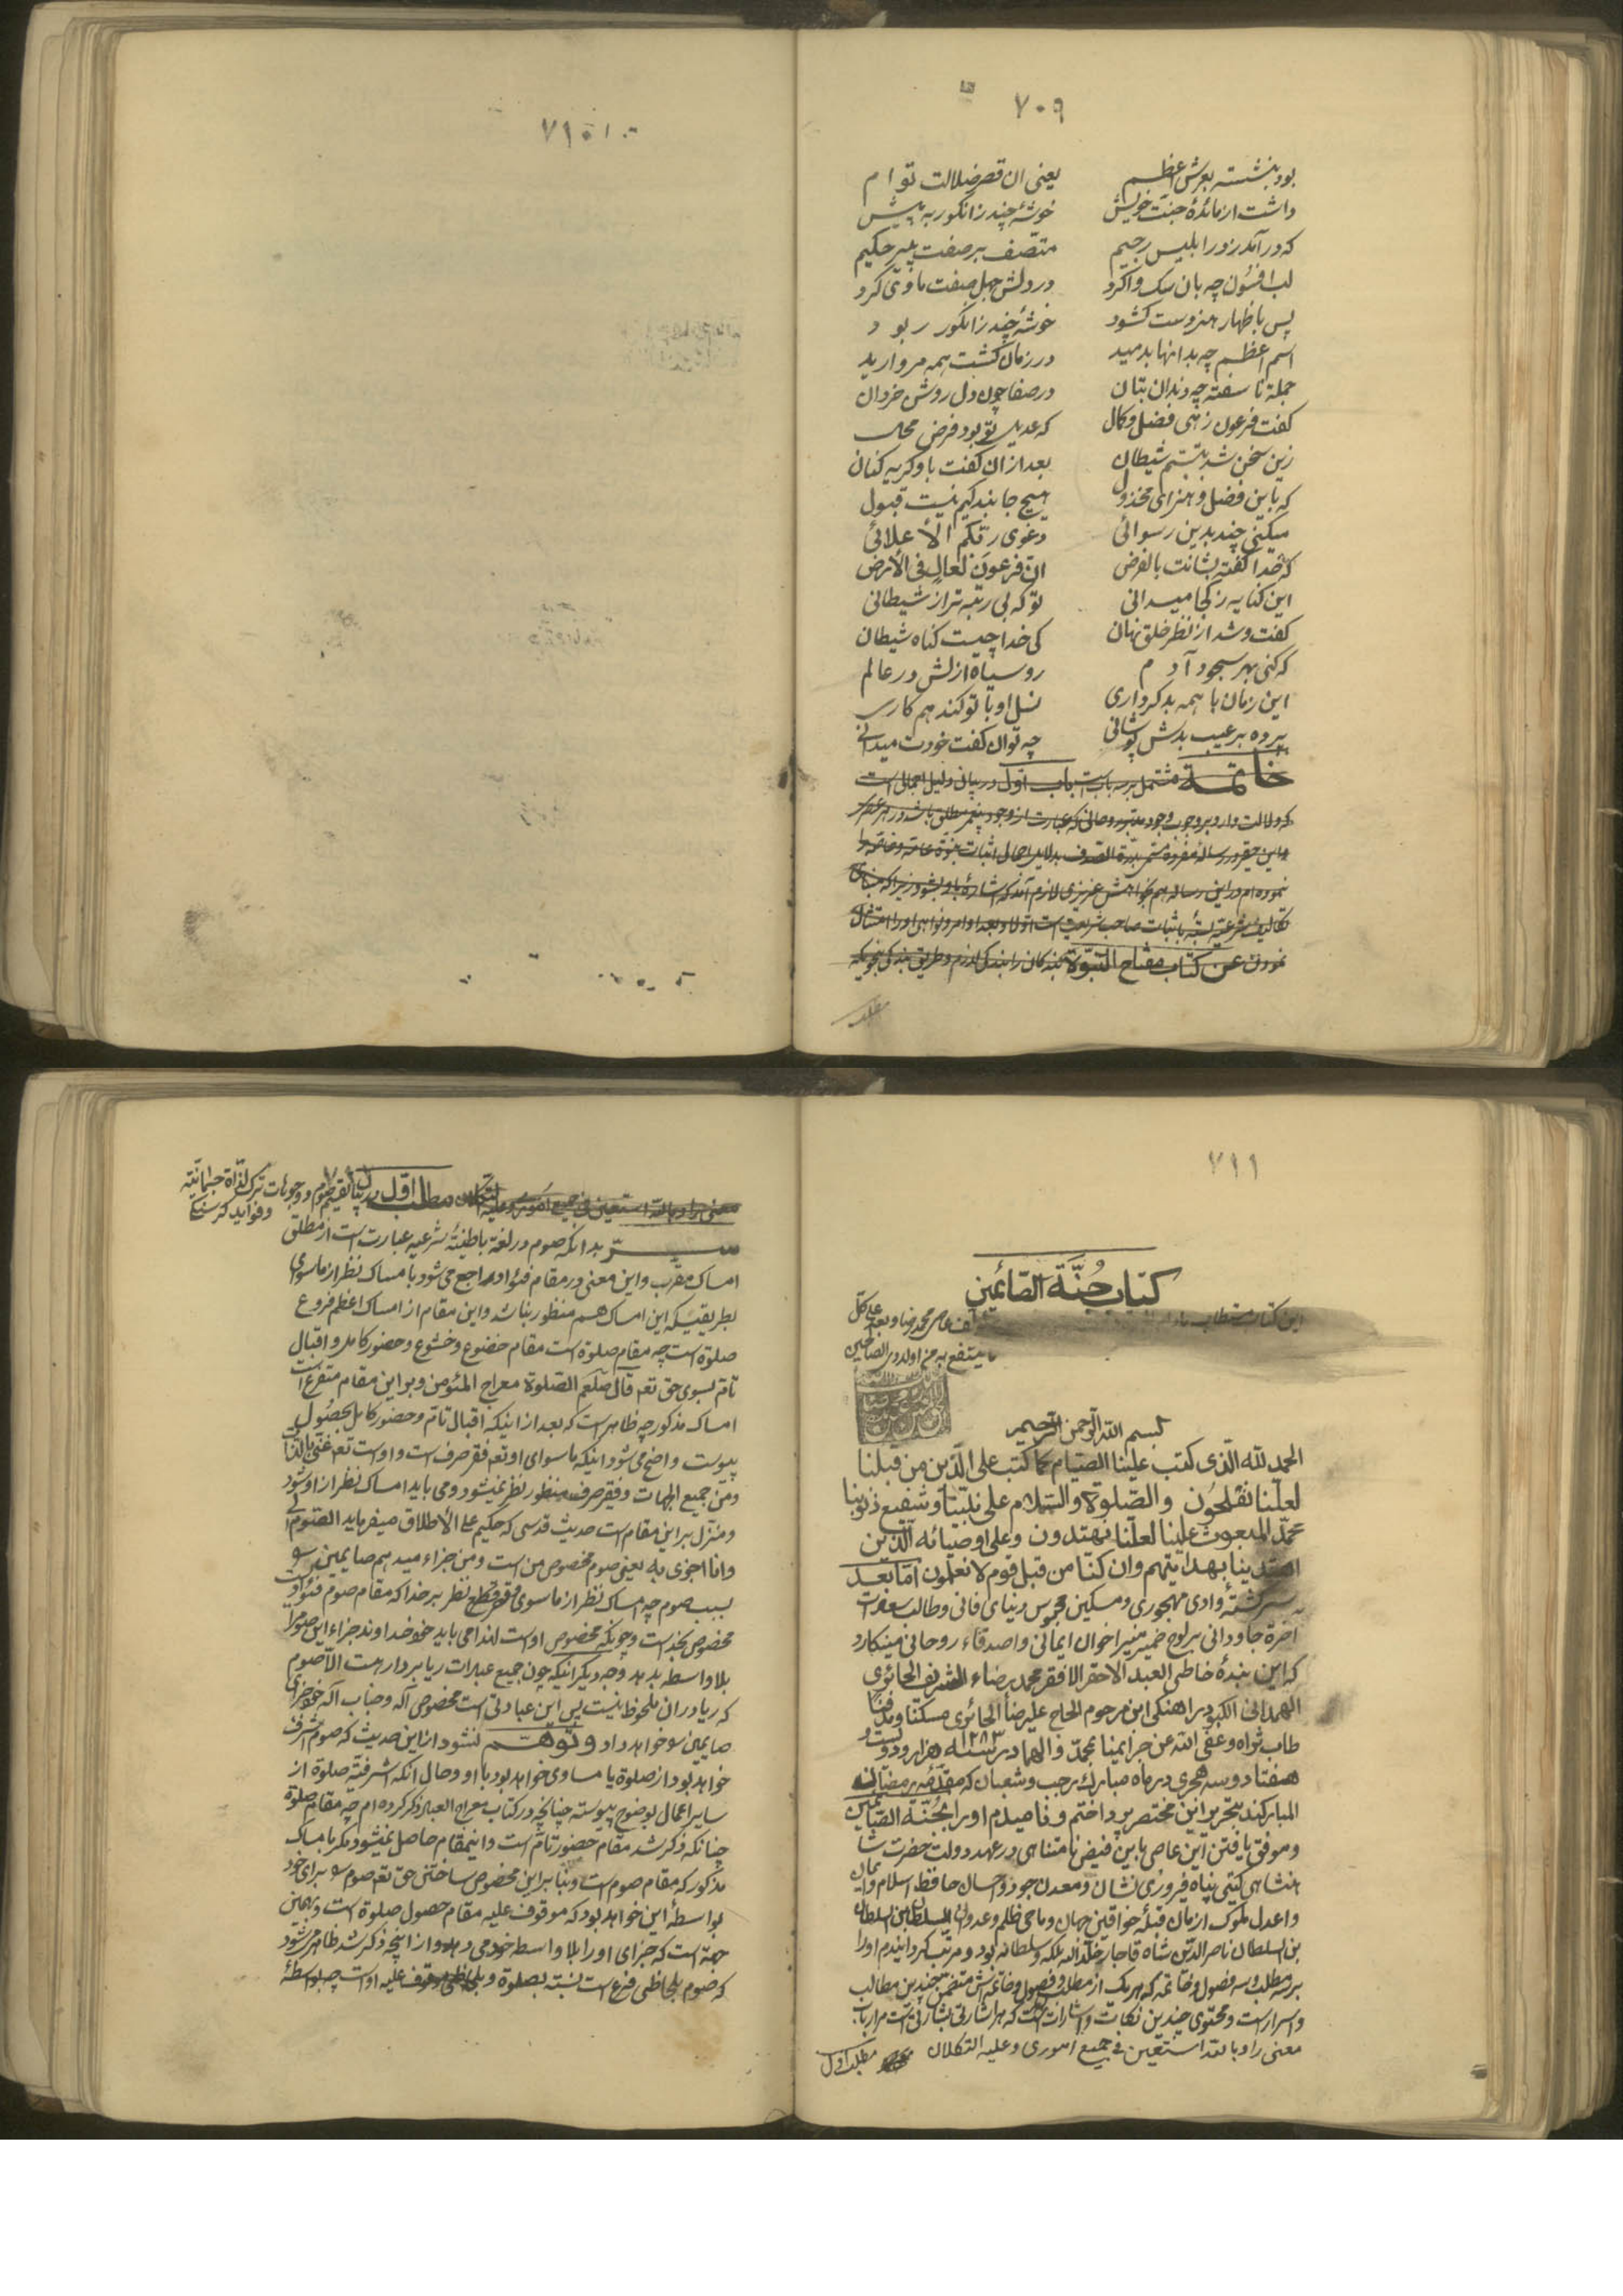 ۷۰۹
بود بنشسته بعرش اعظم یعنی ان قصر ضلالت توام
داشت از مائدهٔ جنت خویش خوشهٔ چند ز انکور به پیش
که در آمد ز در ابلیس رجیم متصف بر صفت پیر حکیم
لب افسون چه بان سک وا کرد در دلش جهل صفت ماوی کرد
پس باظهار هنر دست کشود خوشهٔ چند ز انکور ربود
اسم اعظم چه بدانها بدمید در زمان کشت همه مروارید
جمله ناسفته چه دندان بتان در صفا چون دل روشن خردان
کفت فرعون زهی فضل و کمال که عدیل تو بود فرض محال
زین سخن شد بتبسم شیطان بعد از ان کفت باو کریه کنان
که باین فضل و هنر ای مخذول هیچ جا بندکیم نیست قبول
میکنی چند بدین رسوائی دعوی ربکم الأعلائی
که خدا کفته بشانت بالفرض ان فرعون لعال فی الأرض
این کنایه ز کجا میدانی تو که بی رتبه تر از شیطانی
کفت و شد از نظر خلق نهان کی خدا چیست کناه شیطان
که کنی بهر سجود آدم رو سیاه ازلش در عالم
این زمان با همه بد کرداری نسل او با تو کند همکاری
پرده بر عیب بدش پوشانی چه توان کفت خودت میدانی
خاتمة مشتمل بر سه باب است باب اول در بیان دلیل اجمالی است
که دلالت دارد بر وجوب وجود روحانی که عبارت از وجود پیغمبر مطلق باشد در هر عصر
نموده ام در این رساله هم بخواهش عزیزی لازم آمد که اشارهٔ باو بشود زیرا که
تکالیف شرعیه باثبات صاحب شریعت است اولا و بعد اوامر و نواهی او را امتثال
نمودن عن کتاب مفتاح النبوة
۷۱۰
۷۱۱
کتاب جُنَّة الصّائمین
این کتاب مستطاب
ینتفع به من اولادی الصالحین
بسم الله الرحمن الرحیم
الحمد لله الذی کتب علینا الصیام کما کتب علی الذین من قبلنا
لعلنا نفلحون والصلوة والسلام علی نبینا و شفیع ذنوبنا
محمد المبعوث علینا لعلنا یهتدون وعلی اوصیائه الذین
اهتدینا بهدایتهم وان کنا من قبل قوم لا نعلمون اما بعد
سرکشتهٔ وادی مهجوری و مسکین محبوس دنیای فانی و طالب سعادت
آخرة جاودانی بر لوح ضمیر منیر اخوان ایمانی و اصدقاء روحانی مینکارد
که این بندهٔ خاطی العبد الاحقر الافقر محمد رضاء الشریف الحائری
الهمدانی الکبودراهنکی ابن مرحوم الحاج علیرضا الحائری مسکنا و مدفنا
طاب ثراه و عفی الله عن جرایمنا بمحمد واله امادر سنه ۱۲۸۳ هزار و دویست و
هفتاد و سه هجری در ماه مبارک رجب و شعبان که مقدمه بر رمضان
المبارکند بتحریر این مختصر پرداختم و نامیدم او را بجُنّة الصّائمین
و موفق یافتن این عاصی باین فیض نامتناهی در عهد دولت حضرت شا
هنشاهی کیتی پناه فیروزی نشان و معدن جود و احسان حافظ اسلام و ایمان
و اعدل ملوک ازمان قبلهٔ خواقین جهان و ماحی ظلم و عدوان السلطان بن السلطان
بن السلطان ناصر الدین شاه قاجار خلد الله ملکه و سلطانه بود و مرتب کردانیدم او را
بر سه مطلب و سه فصول و خاتمه که هر یک از مطلب و فصول و خاتمه اش متضمن چندین مطالب
و اسرار است و محتوی چندین نکات و اشارات است که هر اشارتی بشارتی است مر ارباب
معنی را و بالله استعین فی جمیع اموری و علیه التکلان مطلب اول
معنی را و بالله استعین فی جمیع اموری و علیه التکلان مطلب اول در بیان صوم و وجوبات ترک لذاة جسمانیه
و فواید کرسنکی
سرّ بدانکه صوم در لغة باطنیهٔ شرعیه عبارت است از مطلق
امساک مقرب و این معنی در مقام فئواد راجع می شود بامساک نظر از ماسوای
بطریقیکه این امساک هم منظور نباشد و این مقام از امساک اعظم فروع
صلوة است چه مقام صلوة است مقام خضوع و خشوع و حضور کامل و اقبال
تام بسوی حق تعه قال صلعم الصلوة معراج المئومن و بر این مقام متفرع است
امساک مذکور چه ظاهر است که بعد از اینکه اقبال تام و حضور کامل بحصول
پیوست واضح می شود اینکه ماسوای او تعه فقر صرف است و اوست تعه غنی بالذات
و من جمیع الجهات و فقیر صرف منظور نظر نمیشود و می باید امساک نظر از او شود
و منزل بر این مقام است حدیث قدسی که حکیم علی الأطلاق میفرماید الصوم لی
و انا اجزی به یعنی صوم مخصوص من است و من جزاء میدهم صایمین را
بسبب صوم چه امساک نظر از ماسوی و قطع نظر بر خدا که مقام صوم فئواد است
مخصوص بخداست و چونکه مخصوص اوست لهذا می باید خود خداوند جزاء این صوم را
بلا واسطه بدهد وجه دیکر اینکه چون جمیع عبادات ریا بردار است الا صوم
که ریا در ان ملحوظ نیست پس این عبادتی است مخصوص آله و جناب آله خود جزای
صایمین را خواهد داد و توهّم نشود از این حدیث که صوم اشرف
خواهد بود از صلوة یا مساوی خواهد بود با او و حال انکه اشرفیة صلوة از
سایر اعمال بوضوح پیوسته چنانچه در کتاب معراج العباد ذکر کرده ام چه مقام صلوة
چنانکه ذکر شد مقام حضور تام است و اینمقام حاصل نمیشود مکر بامساک
مذکور که مقام صوم است و بنا بر این مخصوص ساختن حق تعه صوم را برای خود
بواسطهٔ این خواهد بود که موقوف علیه مقام حصول صلوة است و بهمین
جهة است که جزای او را بلا واسطه خود می دهد و از انچه ذکر شد ظاهر می شود
که صوم بلحاظی فرع است نسبة بصلوة و بلحاظی موقوف علیه اوست چه بواسطهٔ